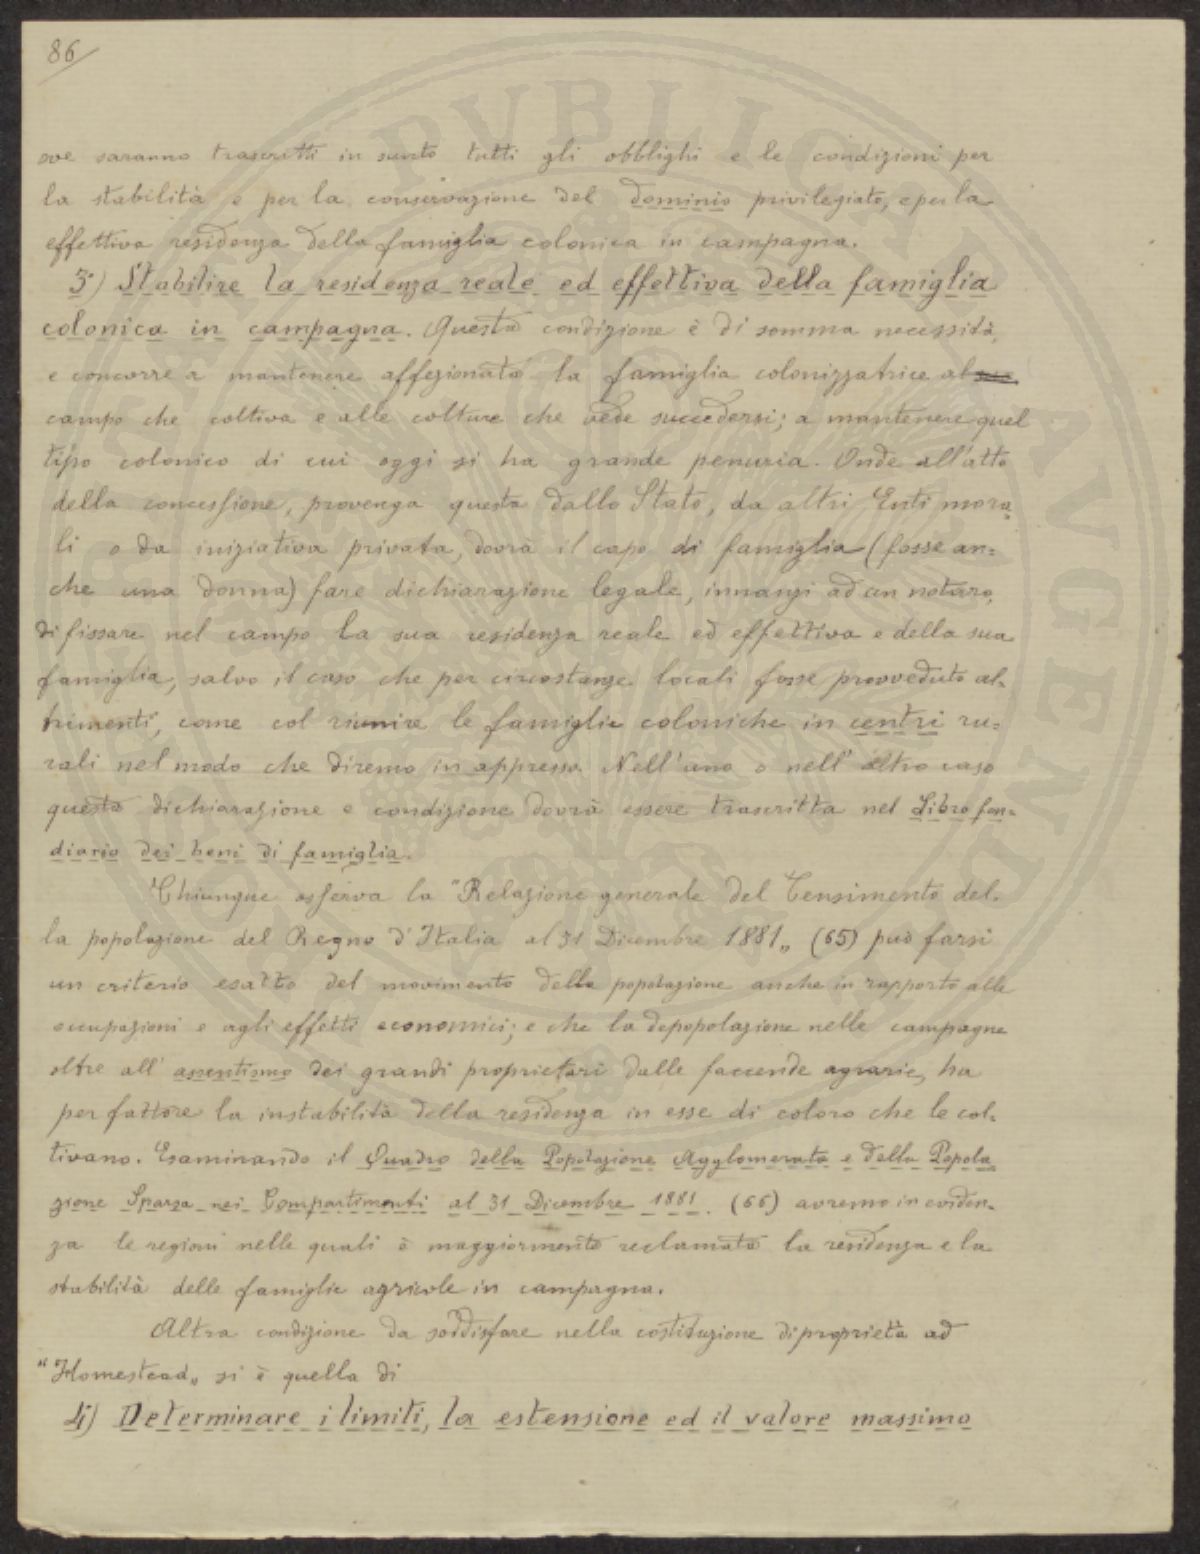 86
ove saranno trascritti in sunto tutti gli obblighi e le condizioni per
la stabilità e per la conservazione del dominio privilegiato, e per la
effettiva residenza della famiglia colonica in campagna.
3°) Stabilire la residenza reale ed effettiva della famiglia
colonica in campagna. Questa condizione è di somma necessità,
e concorre a mantenere affezionata la famiglia colonizzatrice al
campo che coltiva e alle colture che vede succedersi; a mantenere quel
tipo colonico di cui oggi si ha grande penuria. Onde all'atto
della concessione, provenga questa dallo Stato, da altri Enti mora=
li o da iniziativa privata, dovrà il capo di famiglia (fosse an=
che una donna) fare dichiarazione legale, innanzi ad un notaro,
di fissare nel campo la sua residenza reale ed effettiva e della sua
famiglia, salvo il caso che per circostanze locali fosse provveduto al=
trimenti, come col riunire le famiglie coloniche in centri ru=
rali nel modo che diremo in appresso. Nell'uno o nell'altro caso
questa dichiarazione e condizione dovrà essere trascritta nel Libro fon=
diario dei beni di famiglia.
Chiunque osserva la "Relazione generale del Censimento del=
la popolazione del Regno d'Italia al 31 Dicembre 1881„ (65) può farsi
un criterio esatto del movimento della popolazione anche in rapporto alle
occupazioni e agli effetti economici; e che la depopolazione nelle campagne
oltre all'assentismo dei grandi proprietari dalle faccende agrarie, ha
per fattore la instabilità della residenza in esse di coloro che le col=
tivano. Esaminando il Quadro della Popolazione Agglomerata e della Popola
zione Sparsa nei Compartimenti al 31 Dicembre 1881. (66) avremo in eviden=
za le regioni nelle quali è maggiormente reclamata la residenza e la
stabilità delle famiglie agricole in campagna.
Altra condizione da soddisfare nella costituzione di proprietà ad
"Homestead„ si è quella di
4°) Determinare i limiti, la estensione ed il valore massimo